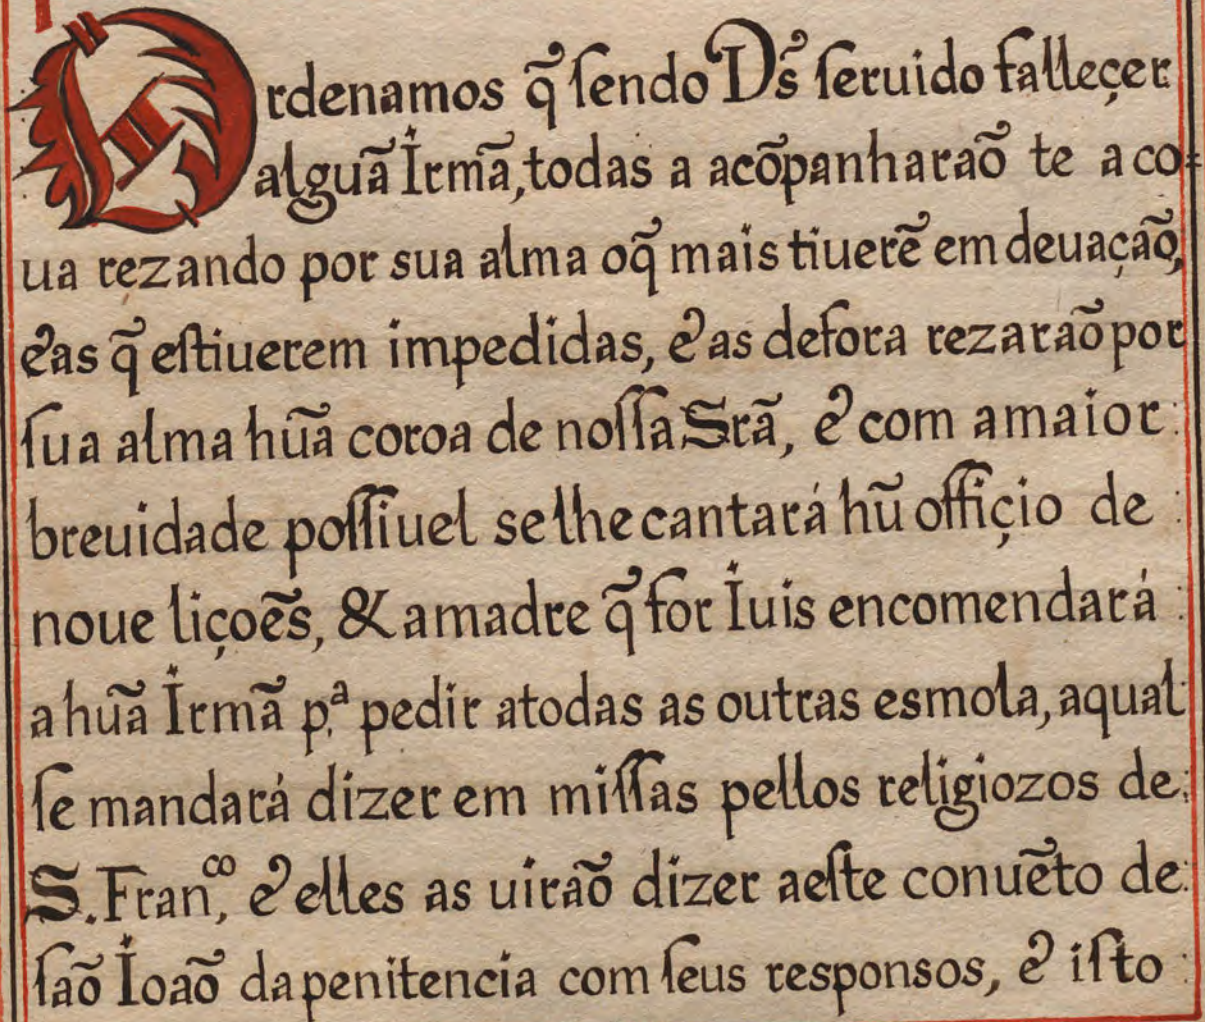 Ordenamos q̃ ſendo Ds̃ ſeruido falleçer
alguã Irmã, todas a acõpanharaõ te a co-
ua rezando por sua alma oq̃ mais tiuerẽ em deuaçaõ,
& as q̃ eſtiuerem impedidas, & as defora rezaraõ por
ſua alma hũa coroa de noſſa Srã, & com amaior
breuidade poſſiuel se lhe cantará hũ officio de
noue liçoẽs, & amadre q̃ for Iuis encomendará
a hũa Irmã p.ª pedir atodas as outras esmola, aqual
ſe mandará dizer em miſſas pellos religiozos de
S. Fran,ᶜᵒ & elles as uiraõ dizer aeſte conuẽto de
ſaõ Ioaõ da penitencia com ſeus responsos, & iſto